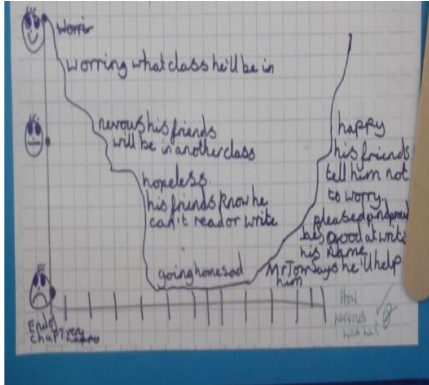 Worrie
Worring what class he'll be in
nervous his friends
will be in another class
hopeless
his friends know he
can't read or write
going home sad
Mr Tom says he'll help
him
pleased and proud
he's good at write
his name
his friends
tell him not
to worry.
happy
End of
chapter
How
nervous
was he?